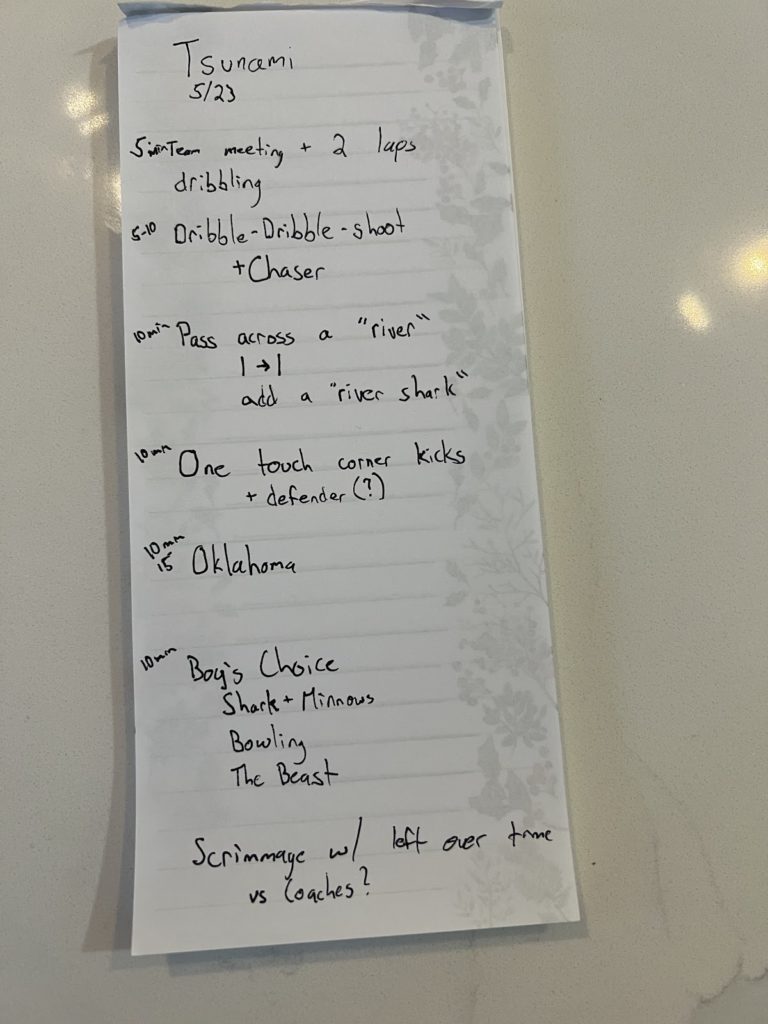 Tsunami
5/23
5min Team meeting + 2 laps
dribbling
5-10 Dribble-Dribble-shoot
+Chaser
10min Pass across a "river"
1→1
add a "river shark"
10min One touch corner kicks
+ defender (?)
10min
15 Oklahoma
10min Boy's Choice
Shark + Minnows
Bowling
The Beast
Scrimmage w/ left over time
vs Coaches?